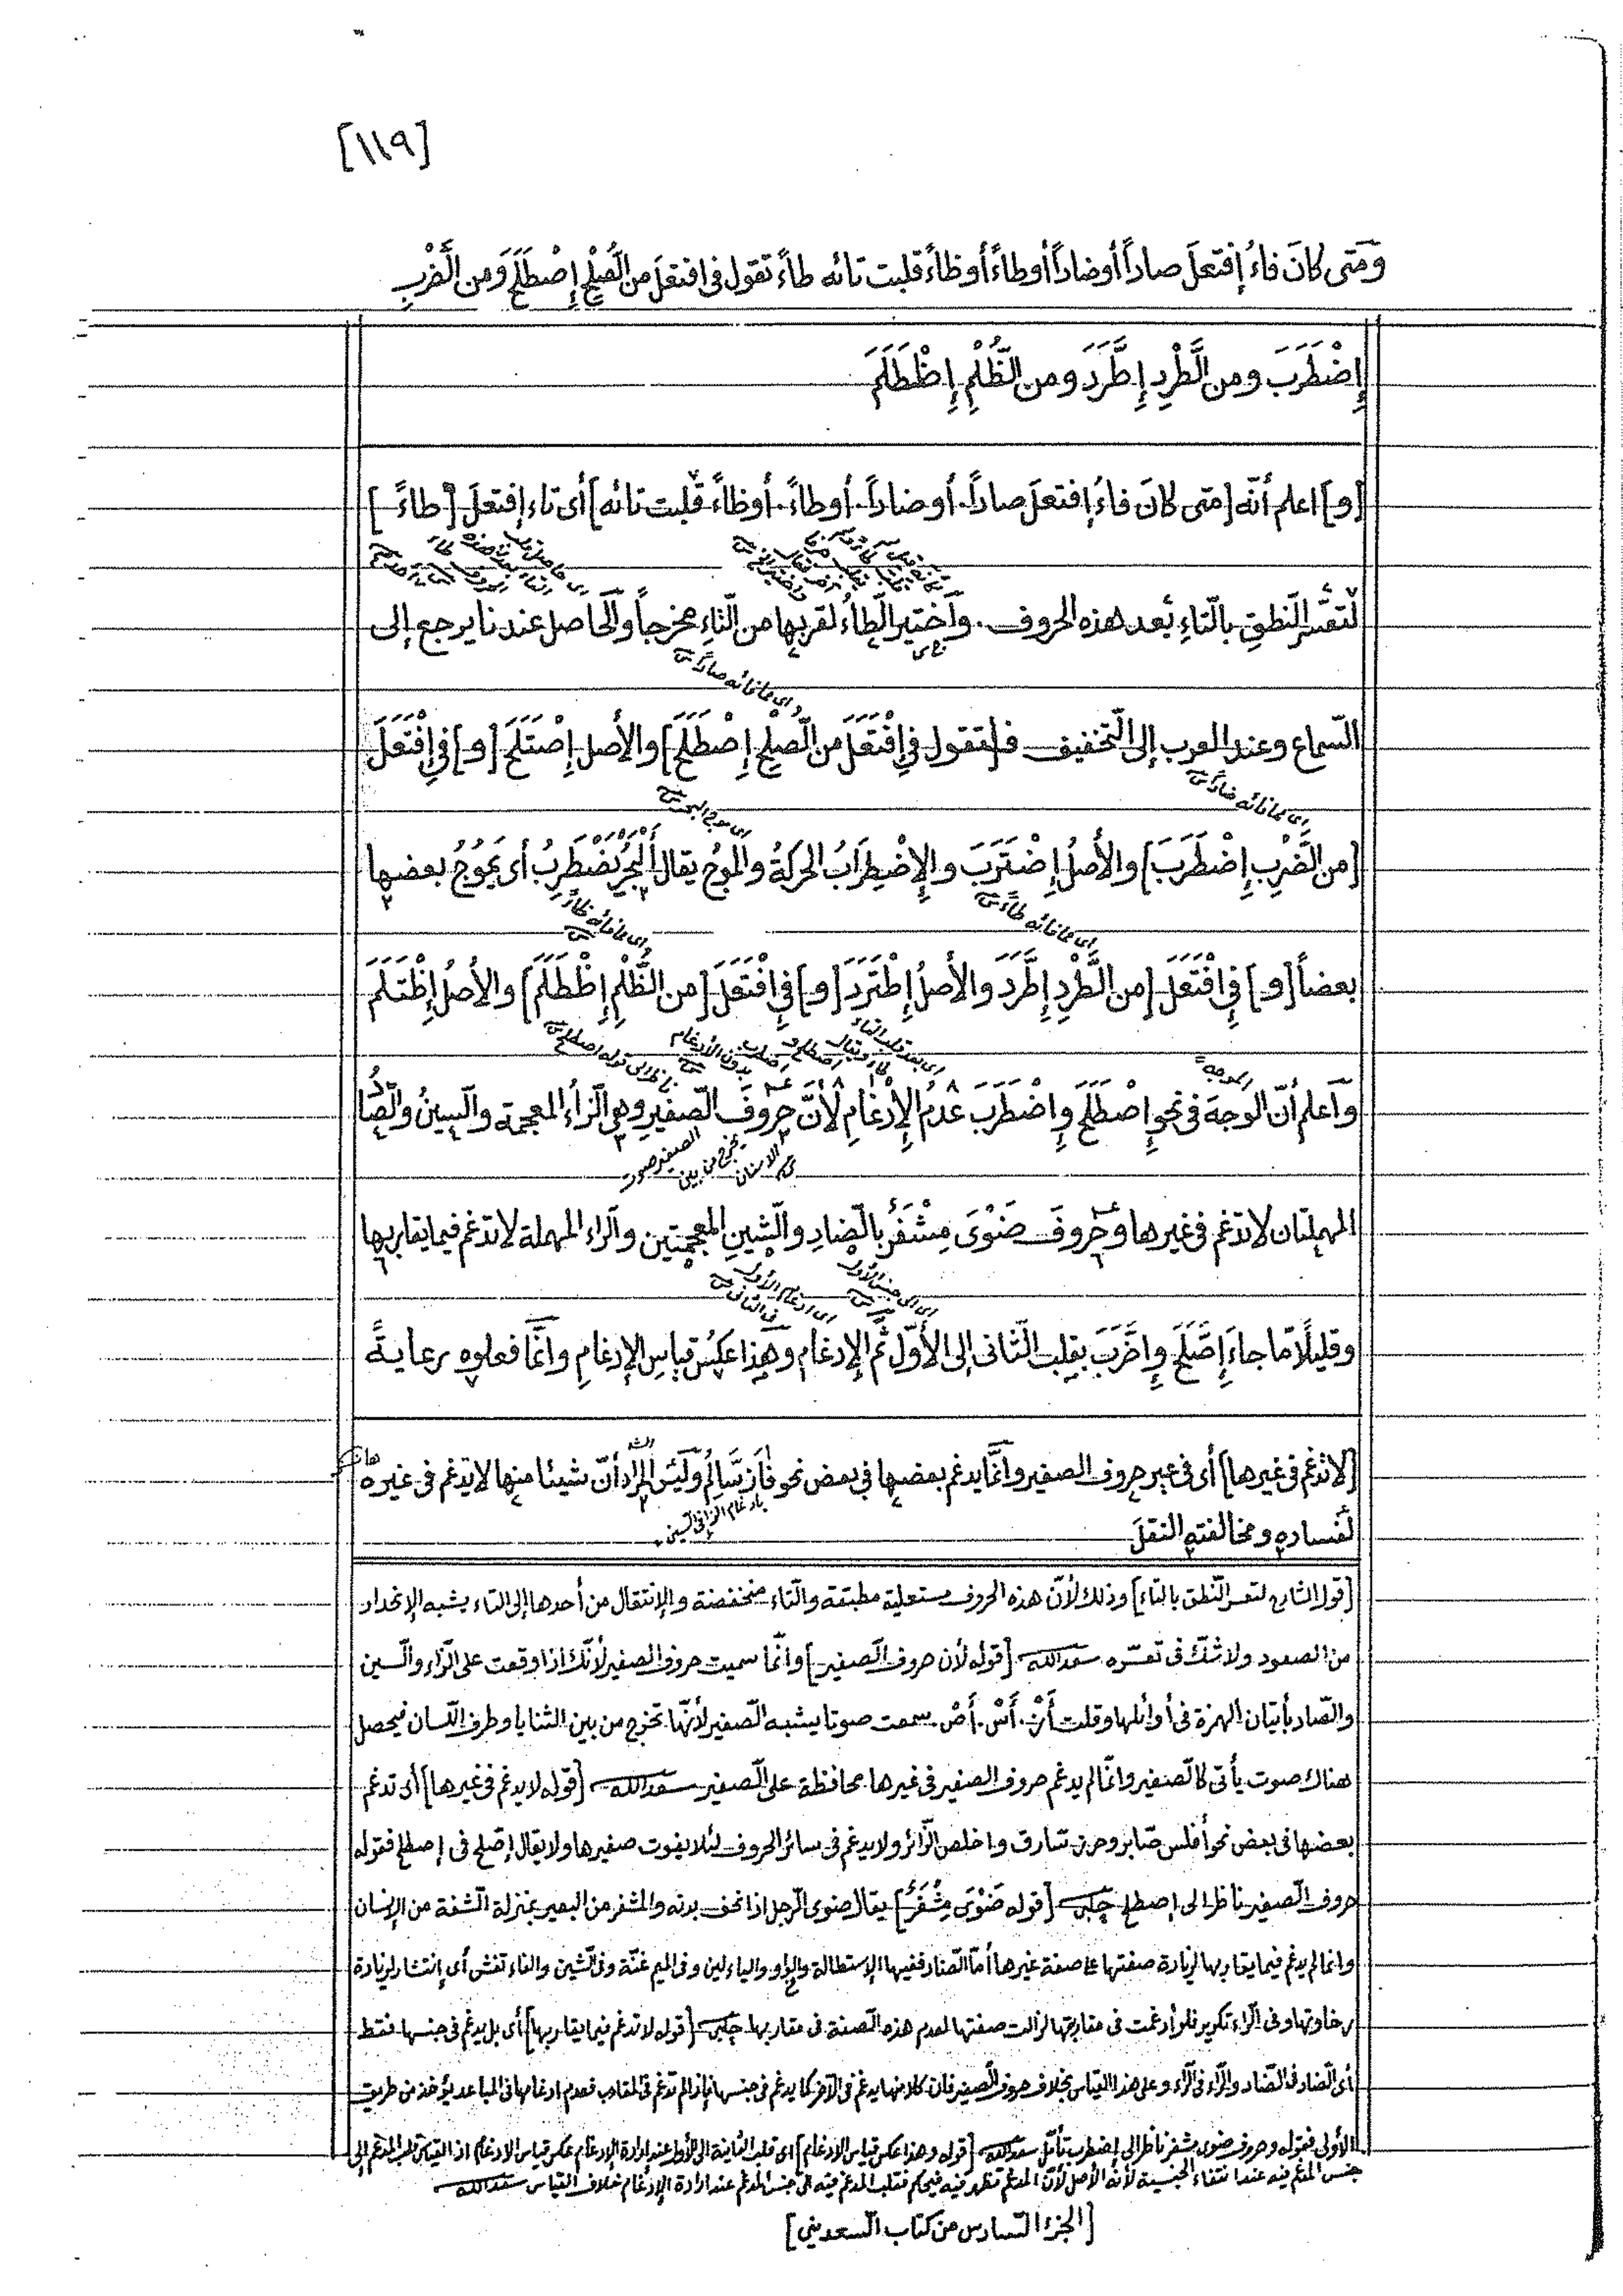 [١١٩]
وَمَتى كانَ فاءُ إفتعلَ صاداً أوضاداً أوطاءً أوظاءً قلبت تائه طاءً تقول فى افتعلَ من الصُلْحِ إِصْطَلَحَ وَمن الضَّرْبِ
إِضْطَرَبَ ومن الطَّرْدِ إِطَّرَدَ ومن الظُّلْمِ إِظْطَلَمَ
[و] اعلم أنّه [متى كانَ فاءُ إفتعلَ صاداً. أو ضاداً. أوطاءً. أوظاءً قلبت تائه] أى تاء إفتعلَ [طاءً]
لتعسّر النّطقِ بالتّاءِ بُعد هذه الحروف. وأختير الطّاءُ لقربها من التّاءِ مخرجاً والحاصل عندنا يرجع إلى
اى مما فائه صاداً
السّماع وعند العرب إلى التّخفيف فـ[ـتقول فى إِفْتَعَلَ من الصّلْحِ إِصْطَلَحَ] والأصل إِصْتَلَحَ [و] فى إِفْتَعَلَ
اى مما فائه ضاداً
اى موج البحر
[من الضَّرْبِ إِضْطَرَبَ] والأصلُ إِضْتَرَبَ والإِضْطِرَابُ الحركةُ والموجُ يقال أَلْبَحْرُ يَضْطَرِبُ أى يَمُوجُ بعضها
اى مما فائه طاءً
اى مما فائه ظاءً
بعضاً [و] فى إِفْتَعَلَ [من الطَّرْدِ إِطَّرَدَ والأصلُ إِطْتَرَدَ [و] فى إِفْتَعَلَ [من الظُّلْمِ إِظْطَلَمَ] والأصلُ إِظْتَلَمَ
واَعلم أنّ الوجهَ فى نحو إِصْطَلَحَ وإِضْطَرَبَ عَدمُ الإِدْغامِ لأنَّ حروفَ الصّفيرِ وهى الزّاءُ المعجمة والسينُ والصّادُ
الصفير صوت يخرج من بين الاسنان
المهملتان لا تدغم فى غيرها وحروفَ ضَوْىَ مِشْفَرُ بالضادِ والشينِ المعجمتين والراء المهملة لا تدغم فيما يقاربها
وقليلًا مّا جاءَ إِصَّلَحَ وإِضَّرَبَ بقلب الثّانى إلى الأوّل ثمّ الإدغام وهذا عكسُ قياسِ الإدغامِ وانّما فعلوه رعايةً
[لا تدغم فى غيرها] أى فى غير حروف الصفير وانّما يدغم بعضها فى بعض نحو فازسَّالِمُ وليسَ المراد أنّ شيئا منها لا يدغم فى غيره
بادغام الزاء فى السين
لفساده ومخالفته النقلَ
[قول الشارح لتعسر النّطق بالتاء] وذلك لأنّ هذه الحروف مستعلية مطبقة والتاء منخفضة والإنتقال من أحدها إلى التاء يشبه الإنحدار
من الصعود ولا شكّ فى تعسّره سعدالله [قوله لأن حروف الصفير] وانّما سميت حروف الصفير لأنّك اذا وقعت على الزاء والسين
والصّاد بأتيان الهمزة فى أوائلها وقلت أَزْ. أَسْ. أَصْ. سمعت صوتا يشبه الصّفير لأنّها تخرج من بين الثنايا وطرف اللّسان فيحصل
هناك صوت يأتى كالصّفير وانّما لم يدغم حروف الصفير فى غيرها محافظة على الصّفير سعدالله [قوله لا يدغم فى غيرها] أى تدغم
بعضها فى بعض نحو أفلس صّابر وحرز سّارق واخلص الزّائر ولا يدغم فى سائر الحروف لئلا يفوت صفيرها ولا يقال إطّلح فى إصطلح فقوله
حروف الصّفير ناظر الى إصطلح چلبى [قوله ضَوْىَ مِشْفَرُ] يقال ضوى الرّجل اذا نحف بدنه والمشفر من البعير بمنزلة الشّفة من الإنسان
وانما لم يدغم فيما يقاربها لزيادة صفتها على صفة غيرها أمّا الضّاد ففيها الإستطالة والواو والياء لين وفى الميم غنّة وفى الشّين والفاء تفش أى إنتشار لزيادة
رخاوتها وفى الرّاء تكرير فلو أدغمت فى مقاربتها لزالت صفتها لعدم هذه الصفة فى مقاربها چلبى [قوله لا تدغم فيما يقاربها] أى بل يدغم فى جنسها فقط
أى الضاد فى الضّاد والرّاء فى الرّاء وعلى هذا القياس بخلاف حروف الصفير فان كلا منها يدغم فى الآخر كما يدغم فى جنسها فإذا لم تدغم فى المقارب فعدم ادغامها فى المباعد يؤخذ من طريق
الأولى فقوله وحروف ضوى مشفر ناظر الى إضطرب تأمّل سعدالله [قوله وهذا عكس قياس الادغام] اى قلب الثانية الى الأولى عند إرادة الإدغام عكس قياس الادغام اذ القياس قلب المدغم إلى
جنس المدغم فيه عند انتفاء الجنسية لأنّه الأصل لأنّ المدغم تظهر فيه فيحكم فقلب المدغم فيه الى جنس المدغم عند ارادة الإدغام خلاف القياس سعدالله
[الجزء السّادس من كتاب السّعدينى]